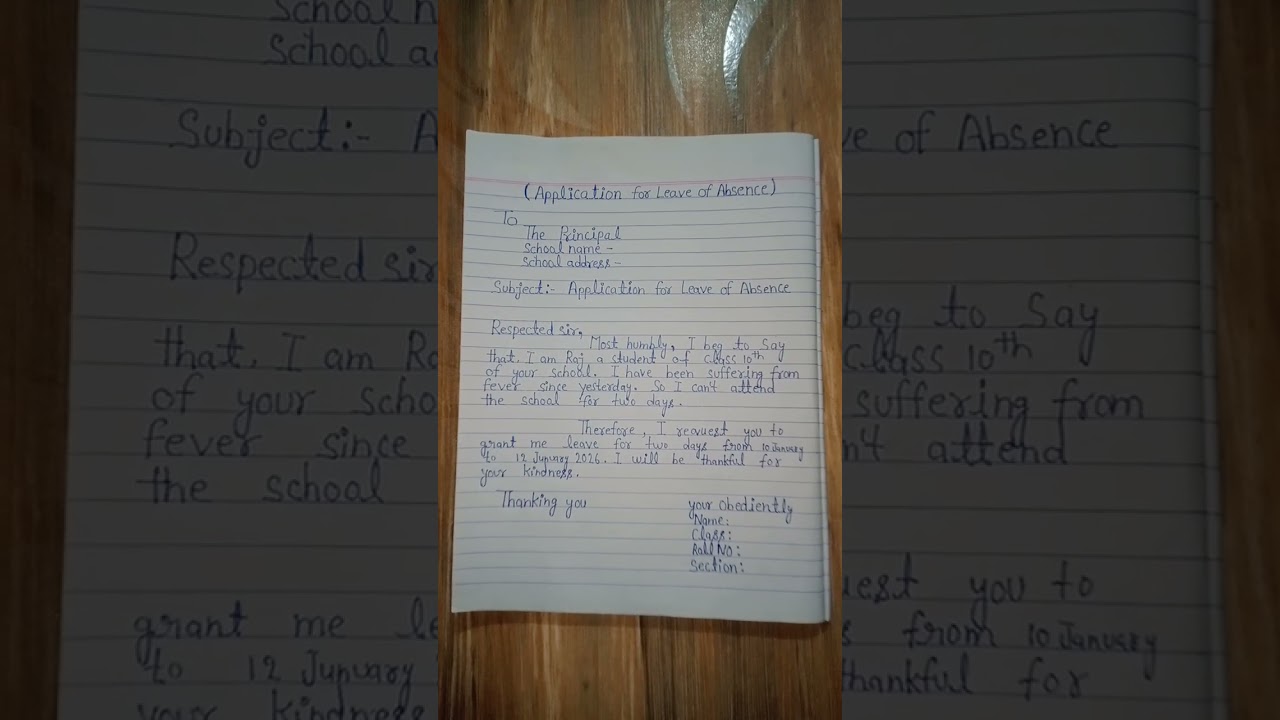 (Application for Leave of Absence)
To
The Principal
School name -
School address -
Subject:- Application for Leave of Absence
Respected sir,
Most humbly, I beg to Say
that, I am Raj a student of Class 10th
of your school. I have been suffering from
fever since yesterday. So I can't attend
the school for two days.
Therefore, I request you to
grant me leave for two days from 10 January
to 12 Junuary 2026. I will be thankful for
your kindness.
Thanking you
your obediently
Name:
Class:
Roll NO:
Section: